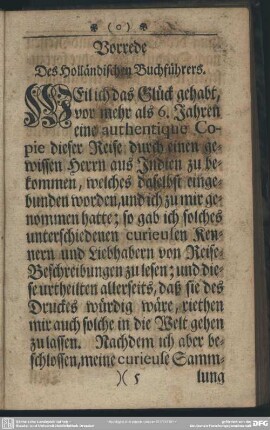 (o)
Vorrede
Des Holländischen Buchführers.
WEil ich das Glück gehabt,
vor mehr als 6. Jahren
eine authentique Co-
pie dieser Reise durch einen ge-
wissen Herrn aus Indien zu be-
kommen, welches daselbst einge-
bunden worden, und ich zu mir ge-
nommen hatte; so gab ich solches
unterschiedenen curieusen Ken-
nern und Liebhabern von Reise-
Beschreibungen zu lesen; und die-
se urtheilten allerseits, daß sie des
Druckes würdig wäre, riethen
mir auch solche in die Welt gehen
zu lassen. Nachdem ich aber be-
schlossen, meine curieuse Samm-
)( 5 lung